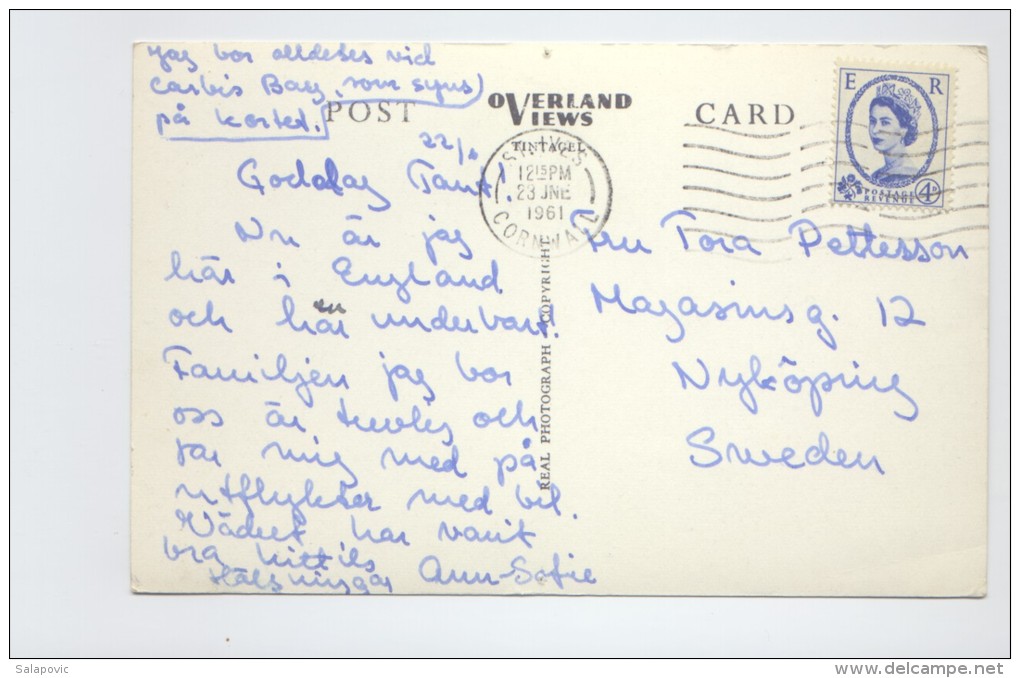 Jag bor alldeles vid
Carbis Bay, som syns
på kortet.
POST
OVERLAND
VIEWS
CARD
TINTAGEL
ST. IVES
12 15 PM
23 JNE
1961
CORNWALL
E R
POSTAGE
REVENUE
4D
REAL PHOTOGRAPH COPYRIGHT
22/6
Goddag Tant!
Nu är jag
här i England
och har underbart.
Familjen jag bor
hos är trevlig och
tar mig med på
utflykter med bil.
Vädret har varit
bra hittils
Hälsningar Ann-Sofie
Fru Tora Pettersson
Magasinsg. 12
Nyköping
Sweden
Salapovic
www.delcampe.net